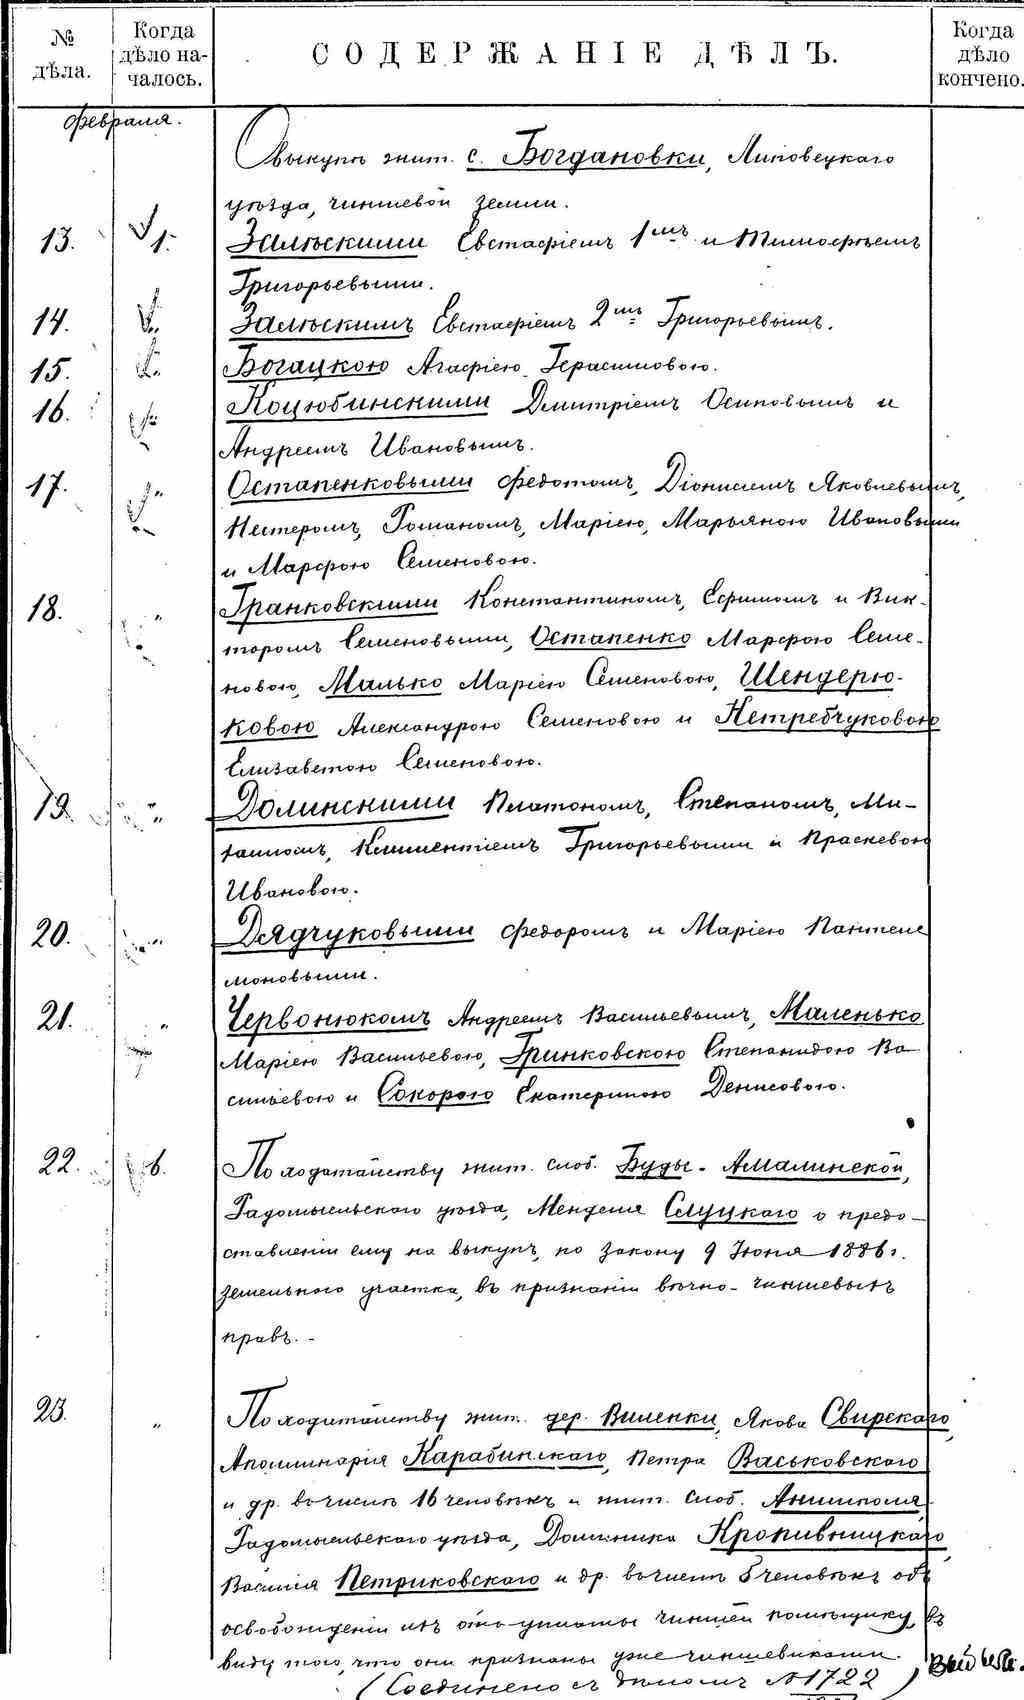 № дѣла.
Когда дѣло началось.
СОДЕРЖАНІЕ ДѢЛЪ.
Когда дѣло кончено.
Февраля.
О выкупѣ жит. с. Богдановки, Липовецкаго
уѣзда, чиншевой земли.
13. 1. Залѣскими Евстафіемъ 1мъ и Тимофѣемъ
Григорьевыми.
14. Залѣскимъ Евстафіемъ 2мъ Григорьевымъ.
15. Богацкою Агафіею Герасимовою.
16. Коцюбинскими Дмитріемъ Осиповымъ и
Андреемъ Ивановымъ.
17. " Остапенковыми Федотомъ, Діонисіемъ Яковлевымъ,
Нестеромъ, Романомъ, Маріею, Марьяною Ивановыми
и Марфою Семеновою.
18. " Гранковскими Константиномъ, Ефимомъ и Вик-
торомъ Семеновыми, Остапенко Марфою Семе-
новою, Малько Маріею Семеновою, Шендерю-
ковою Александрою Семеновою и Нетребчуковою
Елизаветою Семеновою.
19. " Долинскими Платономъ, Степаномъ, Ми-
Климентіемъ Григорьевыми и Праскевою
Ивановою.
20. " Дядчуковыми Федоромъ и Маріею Пантеле
моновыми.
21. " Червонюкомъ Андреемъ Васильевымъ, Маленько
Маріею Васильевою, Гринковскою Степанидою Ва
сильевою и Сокорою Екатериною Денисовою.
22. 6. По ходатайству жит. слоб. Буды-Амалинской,
Радомысльскаго уѣзда, Менделя Слуцкаго о предо-
ставленіи ему на выкупъ, по закону 9 Іюня 1886 г.
земельнаго участка, въ признаніи вѣчно-чиншевыхъ
правъ.-
23. " По ходатайству жит. дер. Виленки, Якова Свирскаго,
Аполлинарія Карабинскаго, Петра Васьковскаго
и др. въ числѣ 16 человѣкъ и жит. слоб.
Радомысльскаго уѣзда, Доминика Кропивницкаго,
Василія Петриковскаго и др. въ числѣ 5 человѣкъ объ
освобожденіи ихъ отъ уплаты чиншей помѣщику, въ
виду того, что они признаны уже чиншевиками.
(Соединено съ дѣломъ №1722)